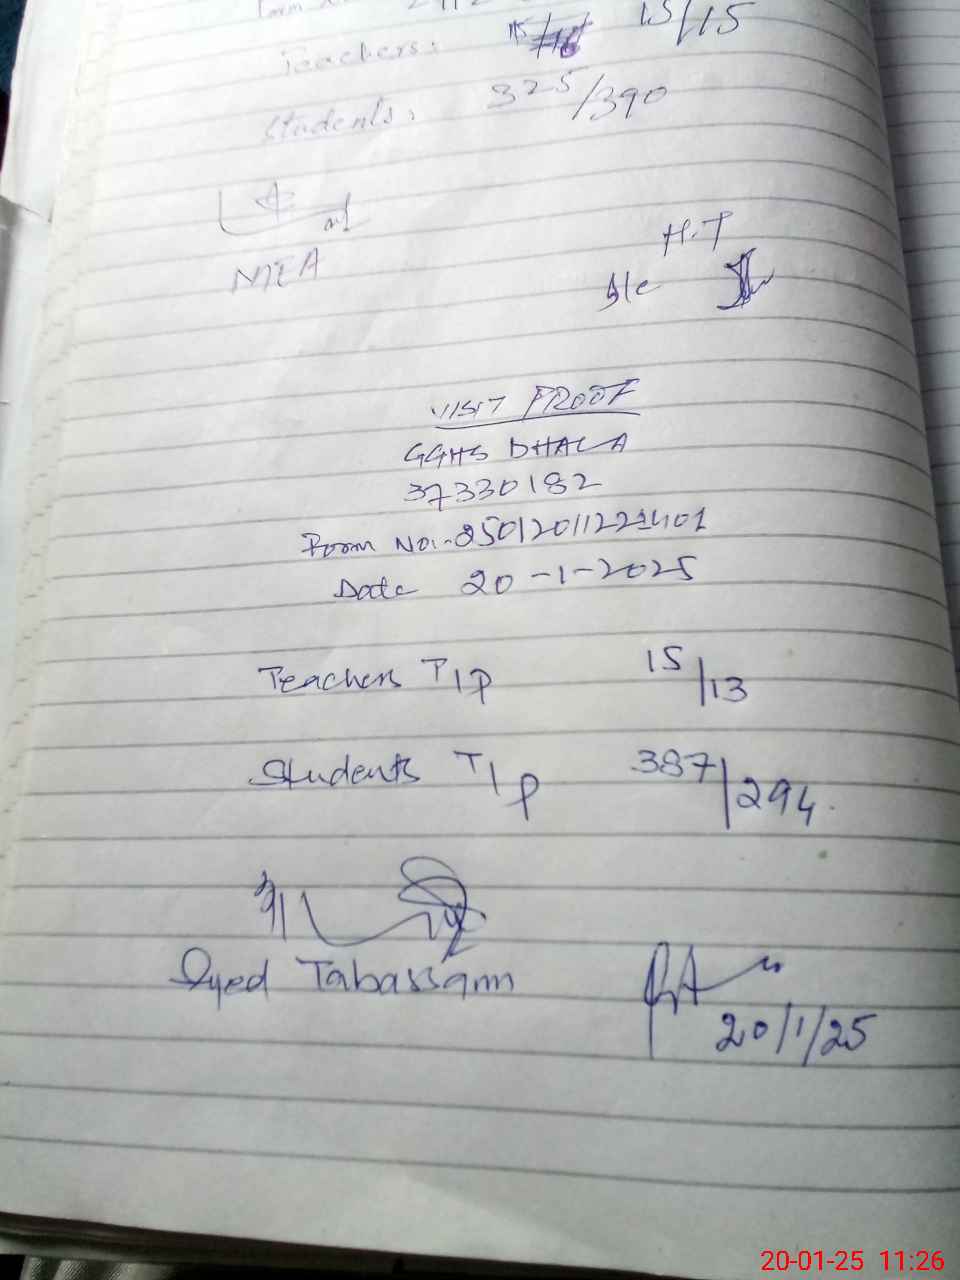 Teachers: 15/15
Students: 325/390
MEA
H.T
VISIT PROOF
GGHS DHALA
37330182
Form No:-
Date 20-1-2025
Teachers T/P 15/13
Students T/P 387/294
Syed Tabassam
20/1/25
20-01-25 11:26